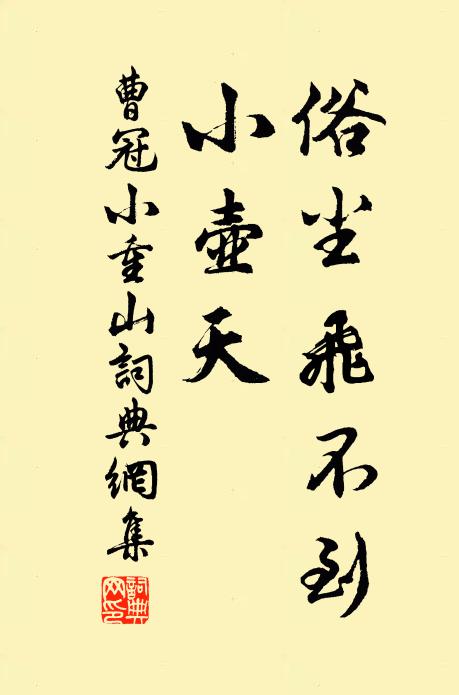 俗尘飛不到
小壷天
曹冠小重山詞典網集
詞典网印